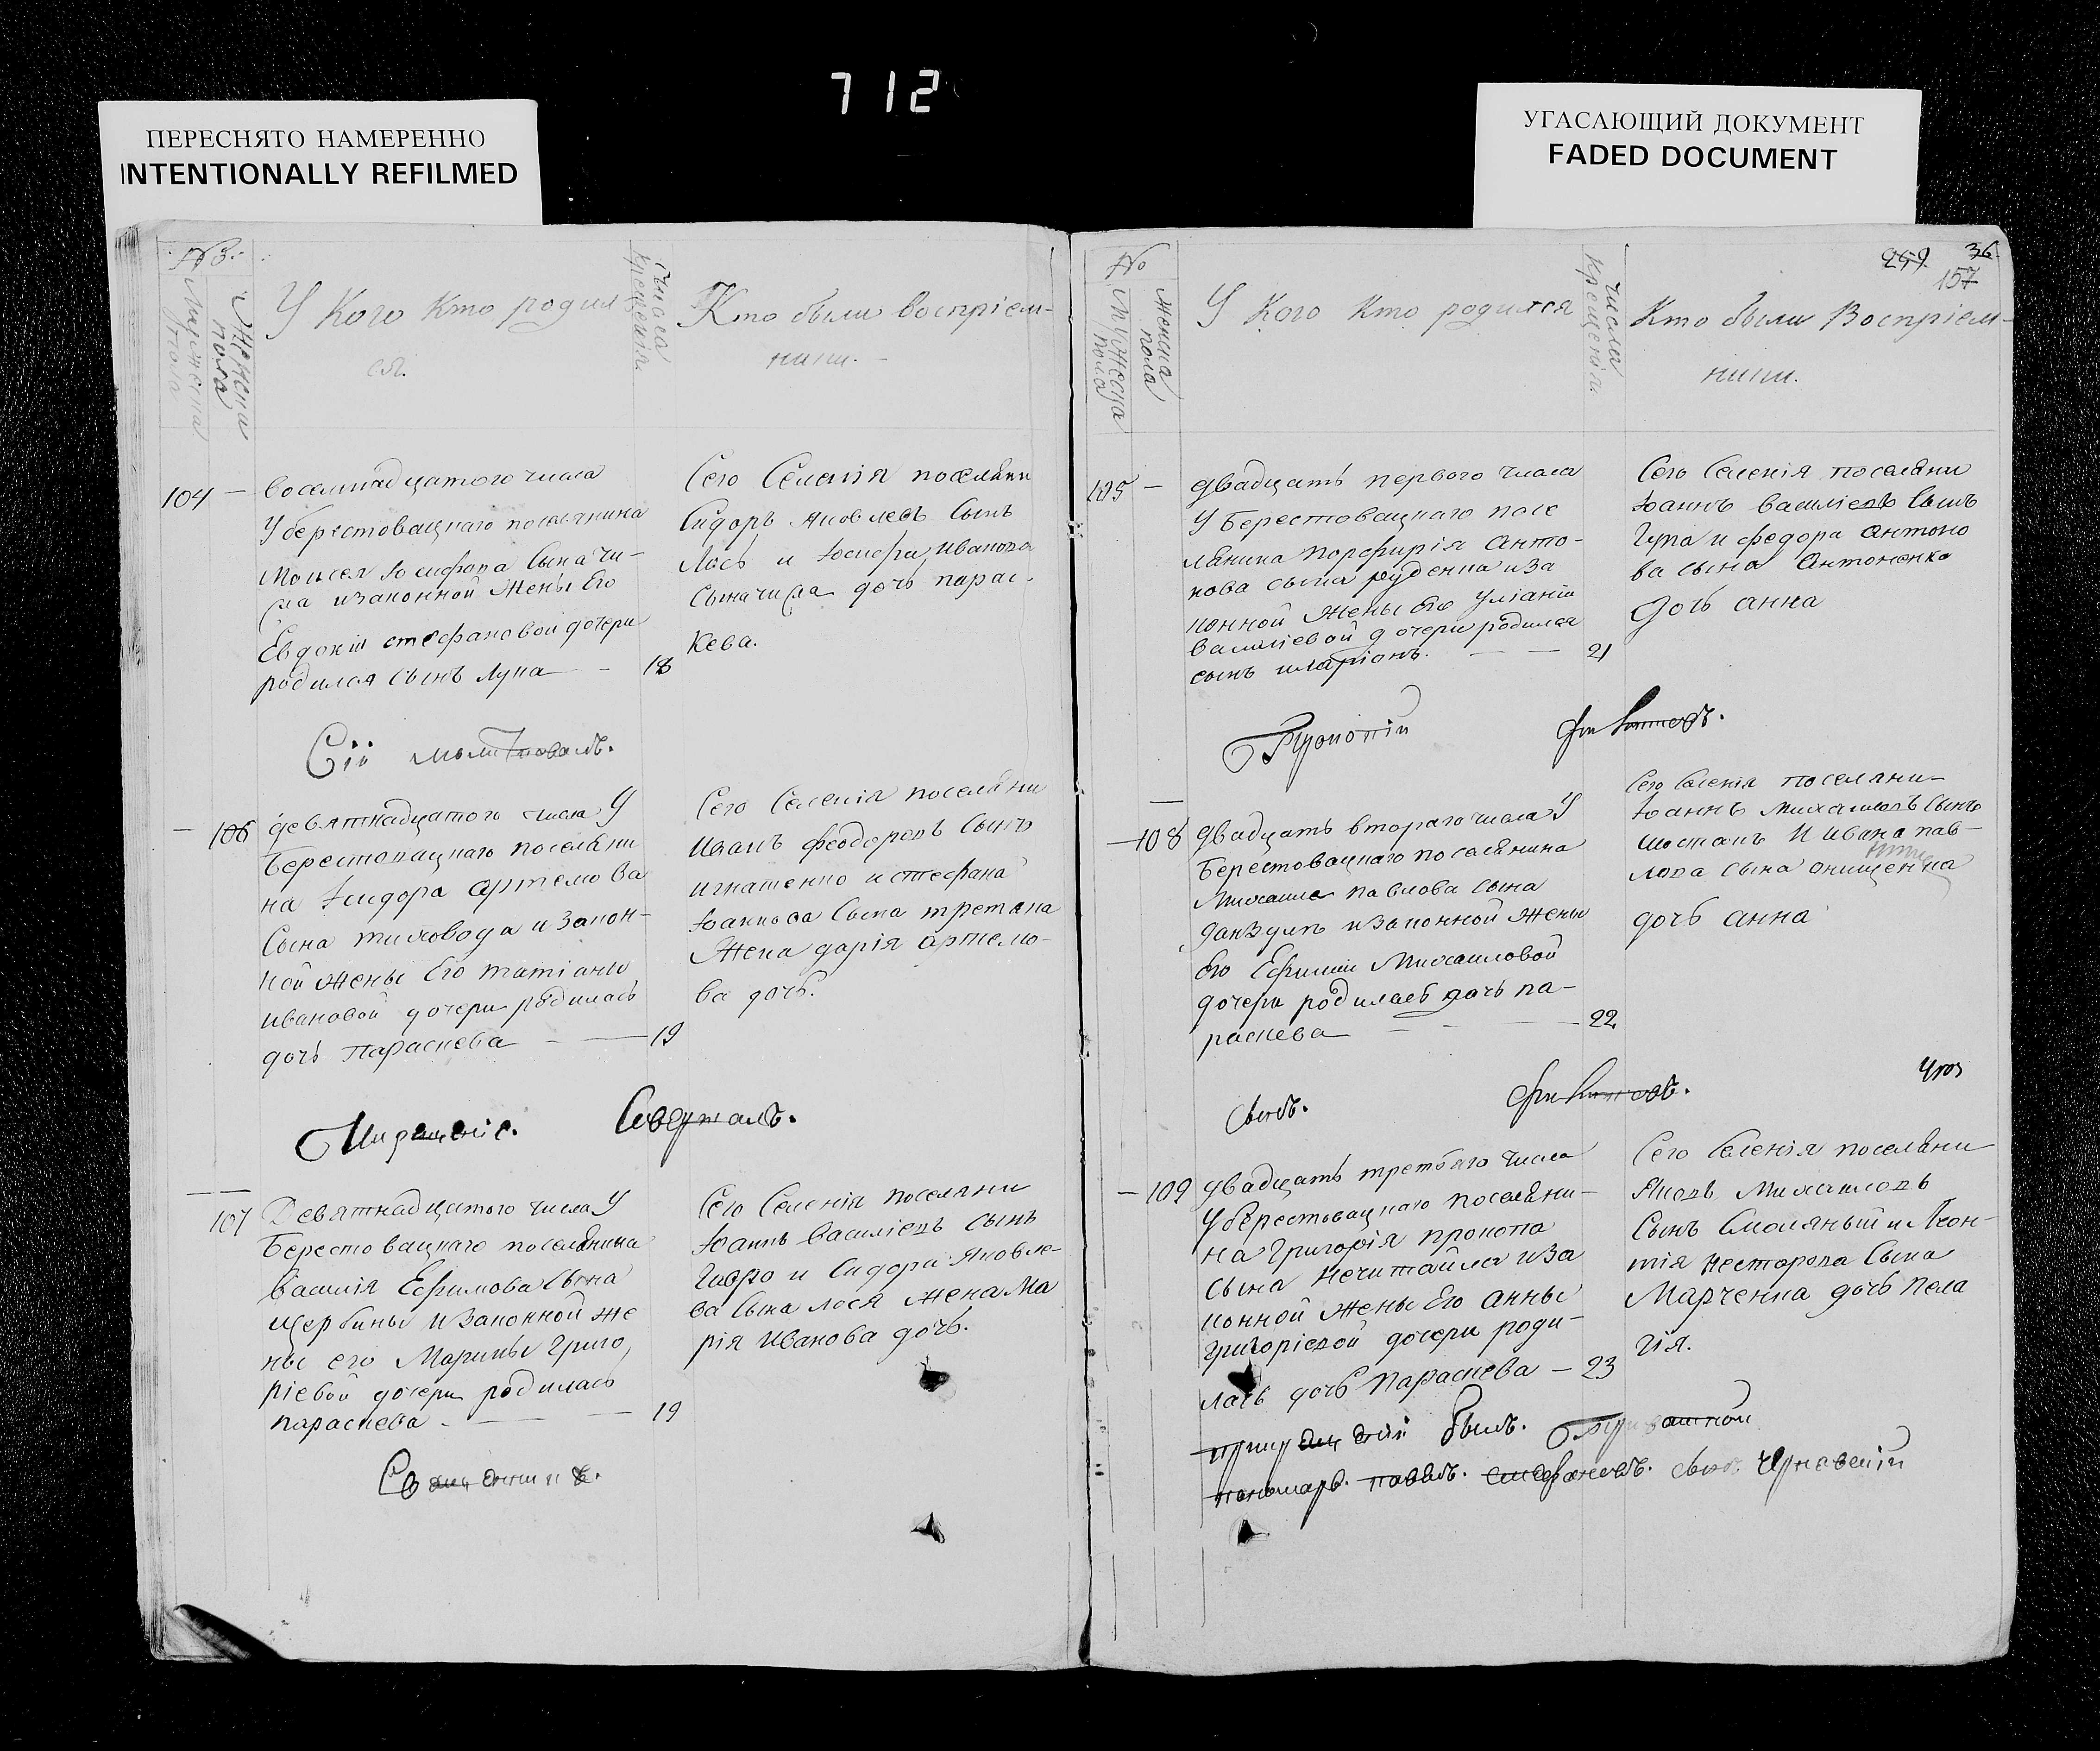 712
ПЕРЕСНЯТО НАМЕРЕННО
INTENTIONALLY REFILMED
УГАСАЮЩИЙ ДОКУМЕНТ
FADED DOCUMENT
№
Мужеска пола
Женска пола
У Кого Кто родил
ся.
Числа крещенія
Кто были воспріем-
ники. -
104 - восемнадцатого числа
У берестовацкаго поселянина
Моисея Іосифова Сына Чи-
законной Жены Его
Евдокіи стефановой дочери
родился Сынъ Лука - 18
Сего Селенія поселяни
Сидоръ Яковлевъ Сынъ
Лось и Іосифа Иванова
Сына дочь парас-
кева.
Сіи
- 106 девятнадцатого числа У
Берестовацкаго поселяни
на Ісидора Артемова
Сына тиховода и закон-
ной жены Его татіаны
ивановой дочери родилась
дочь Параскева - 19
Сего Селенія поселяни
Иванъ Феодоровъ Сынъ
игнатенко и стефана
Іоаннова Сына третяка
Жена дарія артемо-
ва дочь.
107 Девятнадцатого числа У
Берестовацкаго поселянина
Василія Ефимова Сына
щербины и законной же
ны его Марины Григо
ріевой дочери родилась
параскева - 19
Сего Селенія поселяни
Іоаннъ Василіевъ Сынъ
и Сидора Яковле-
ва Сына лося жена Ма
рія Иванова дочь.
259 36
157
№
Мужеска пола
Женска пола
У Кого Кто родился
Числа крещенія
Кто были Воспріем-
ники.
105 - двадцать первого числа
У Берестовацкаго посе
лянина Порфирія Анто-
нова сына руденка и за
конной жены его Уліаніи
василіевой дочери родился
сынъ иларіонъ. - 21
Сего Селенія поселяни
Іоаннъ василіевъ Сынъ
и федора Антоно
ва сына Антоненка
дочь анна
-108 двадцать втораго числа У
Берестовацкаго поселянина
Михаила павлова сына
и законной жены
его Ефиміи Михаиловой
дочери родилась дочь па-
раскева - 22
Сего Селенія поселяни-
Іоаннъ Михаиловъ Сынъ
шостакъ И ивана пав-
лова сына онищенка
дочь анна
- 109 двадцать третьяго числа
У берестовацкаго поселяни-
на Григорія прокопа
сына нечитайла и за
конной жены Его Анны
григоріевой дочери роди-
лась дочь Параскева - 23
Сего Селенія поселяни
Яковъ Михаиловъ
Сынъ Смоляный и Леон-
тія Несторова Сына
Марченка дочь пела
гія.
былъ.
пономарь.